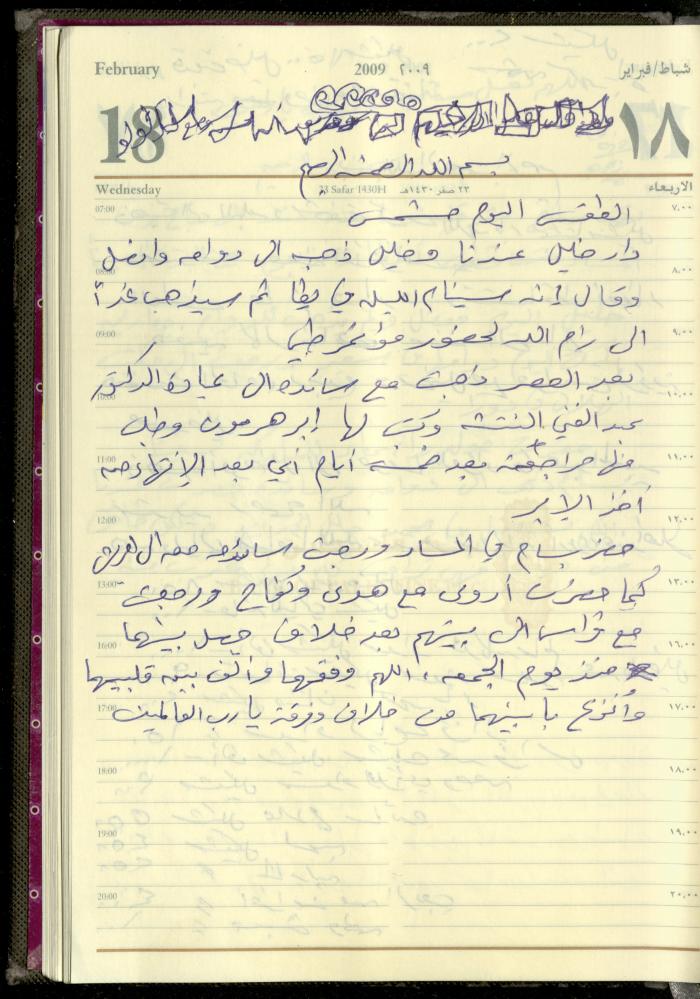 February 2009 ٢٠٠٩ شباط/فبراير
18 ١٨
بسم الله الرحمن الرحيم
Wednesday 23 Safar 1430H ٢٣ صفر ١٤٣٠هـ الاربعاء
07:00 الطقس اليوم مشمس ٧،٠٠
دار خليل عندنا وخليل ذهب الى دوامه واتصل
08:00 ٨،٠٠
وقال إنه سينام الليله في يطا ثم سيذهب غداً
09:00 الى رام الله لحضور مؤتمر طبي ٩،٠٠
بعد العصر ذهبت مع سائده الى عيادة الدكتور
10:00 ١٠،٠٠
عبد الغني النتشه وكتب لها إبر هرمون وطلب
11:00 منها مراجعته بعد خمسة أيام أي بعد الإنتهاء من ١١،٠٠
أخذ الابر
12:00 ١٢،٠٠
حضر بسام في المساء ورجعت سائده معه الى
13:00 كما حضرت أروى مع هدى وكفاح ورجعت ١٣،٠٠
16:00 مع فراس الى بيتهم بعد خلاف حصل بينهما ١٦،٠٠
منذ يوم الجمعه، اللهم وفقهما وألف بين قلبيهما
17:00 وأنزع ما بينهما من خلاف وفرقة يا رب العالمين ١٧،٠٠
18:00 ١٨،٠٠
19:00 ١٩،٠٠
20:00 ٢٠،٠٠